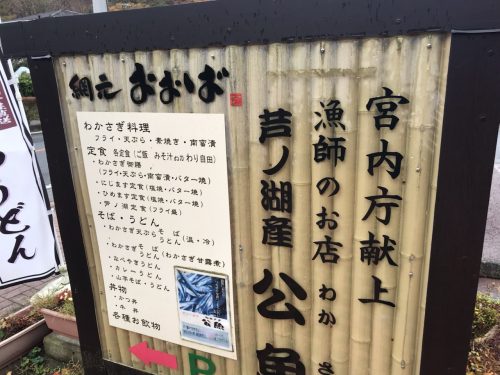 宮内庁献上
漁師のお店 わかさ
芦ノ湖産 公魚
網元 おおば
わかさぎ料理
フライ・天ぷら・素焼き・南蛮漬
定食 各定食(ご飯 みそ汁おかわり自由)
・わかさぎ御膳
(フライ・天ぷら・南蛮漬・バター焼)
・にじます定食(塩焼・バター焼)
・ひめます定食(塩焼・バター焼)
・芦ノ湖定食(フライ盛)
そば・うどん
・わかさぎ天ぷら そば うどん(温・冷)
・わかさぎ そば うどん(わかさぎ甘露煮)
・なべやきうどん
・カレーうどん
・山菜そば・うどん
丼物
・かつ丼
・牛丼
各種お飲物
公魚
P
うどん